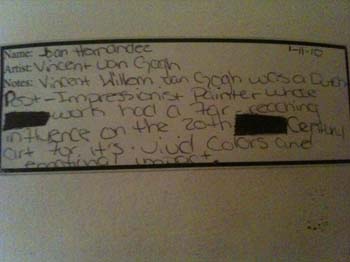 Name: Joan Hernandez 1-11-10
Artist: Vincent van Gogh
Notes: Vincent Willem van Gogh was a Dutch
Post-Impressionist Painter whose
work had a far-reaching
influence on the 20th Century
art for it's vivid colors and
emotional impact.